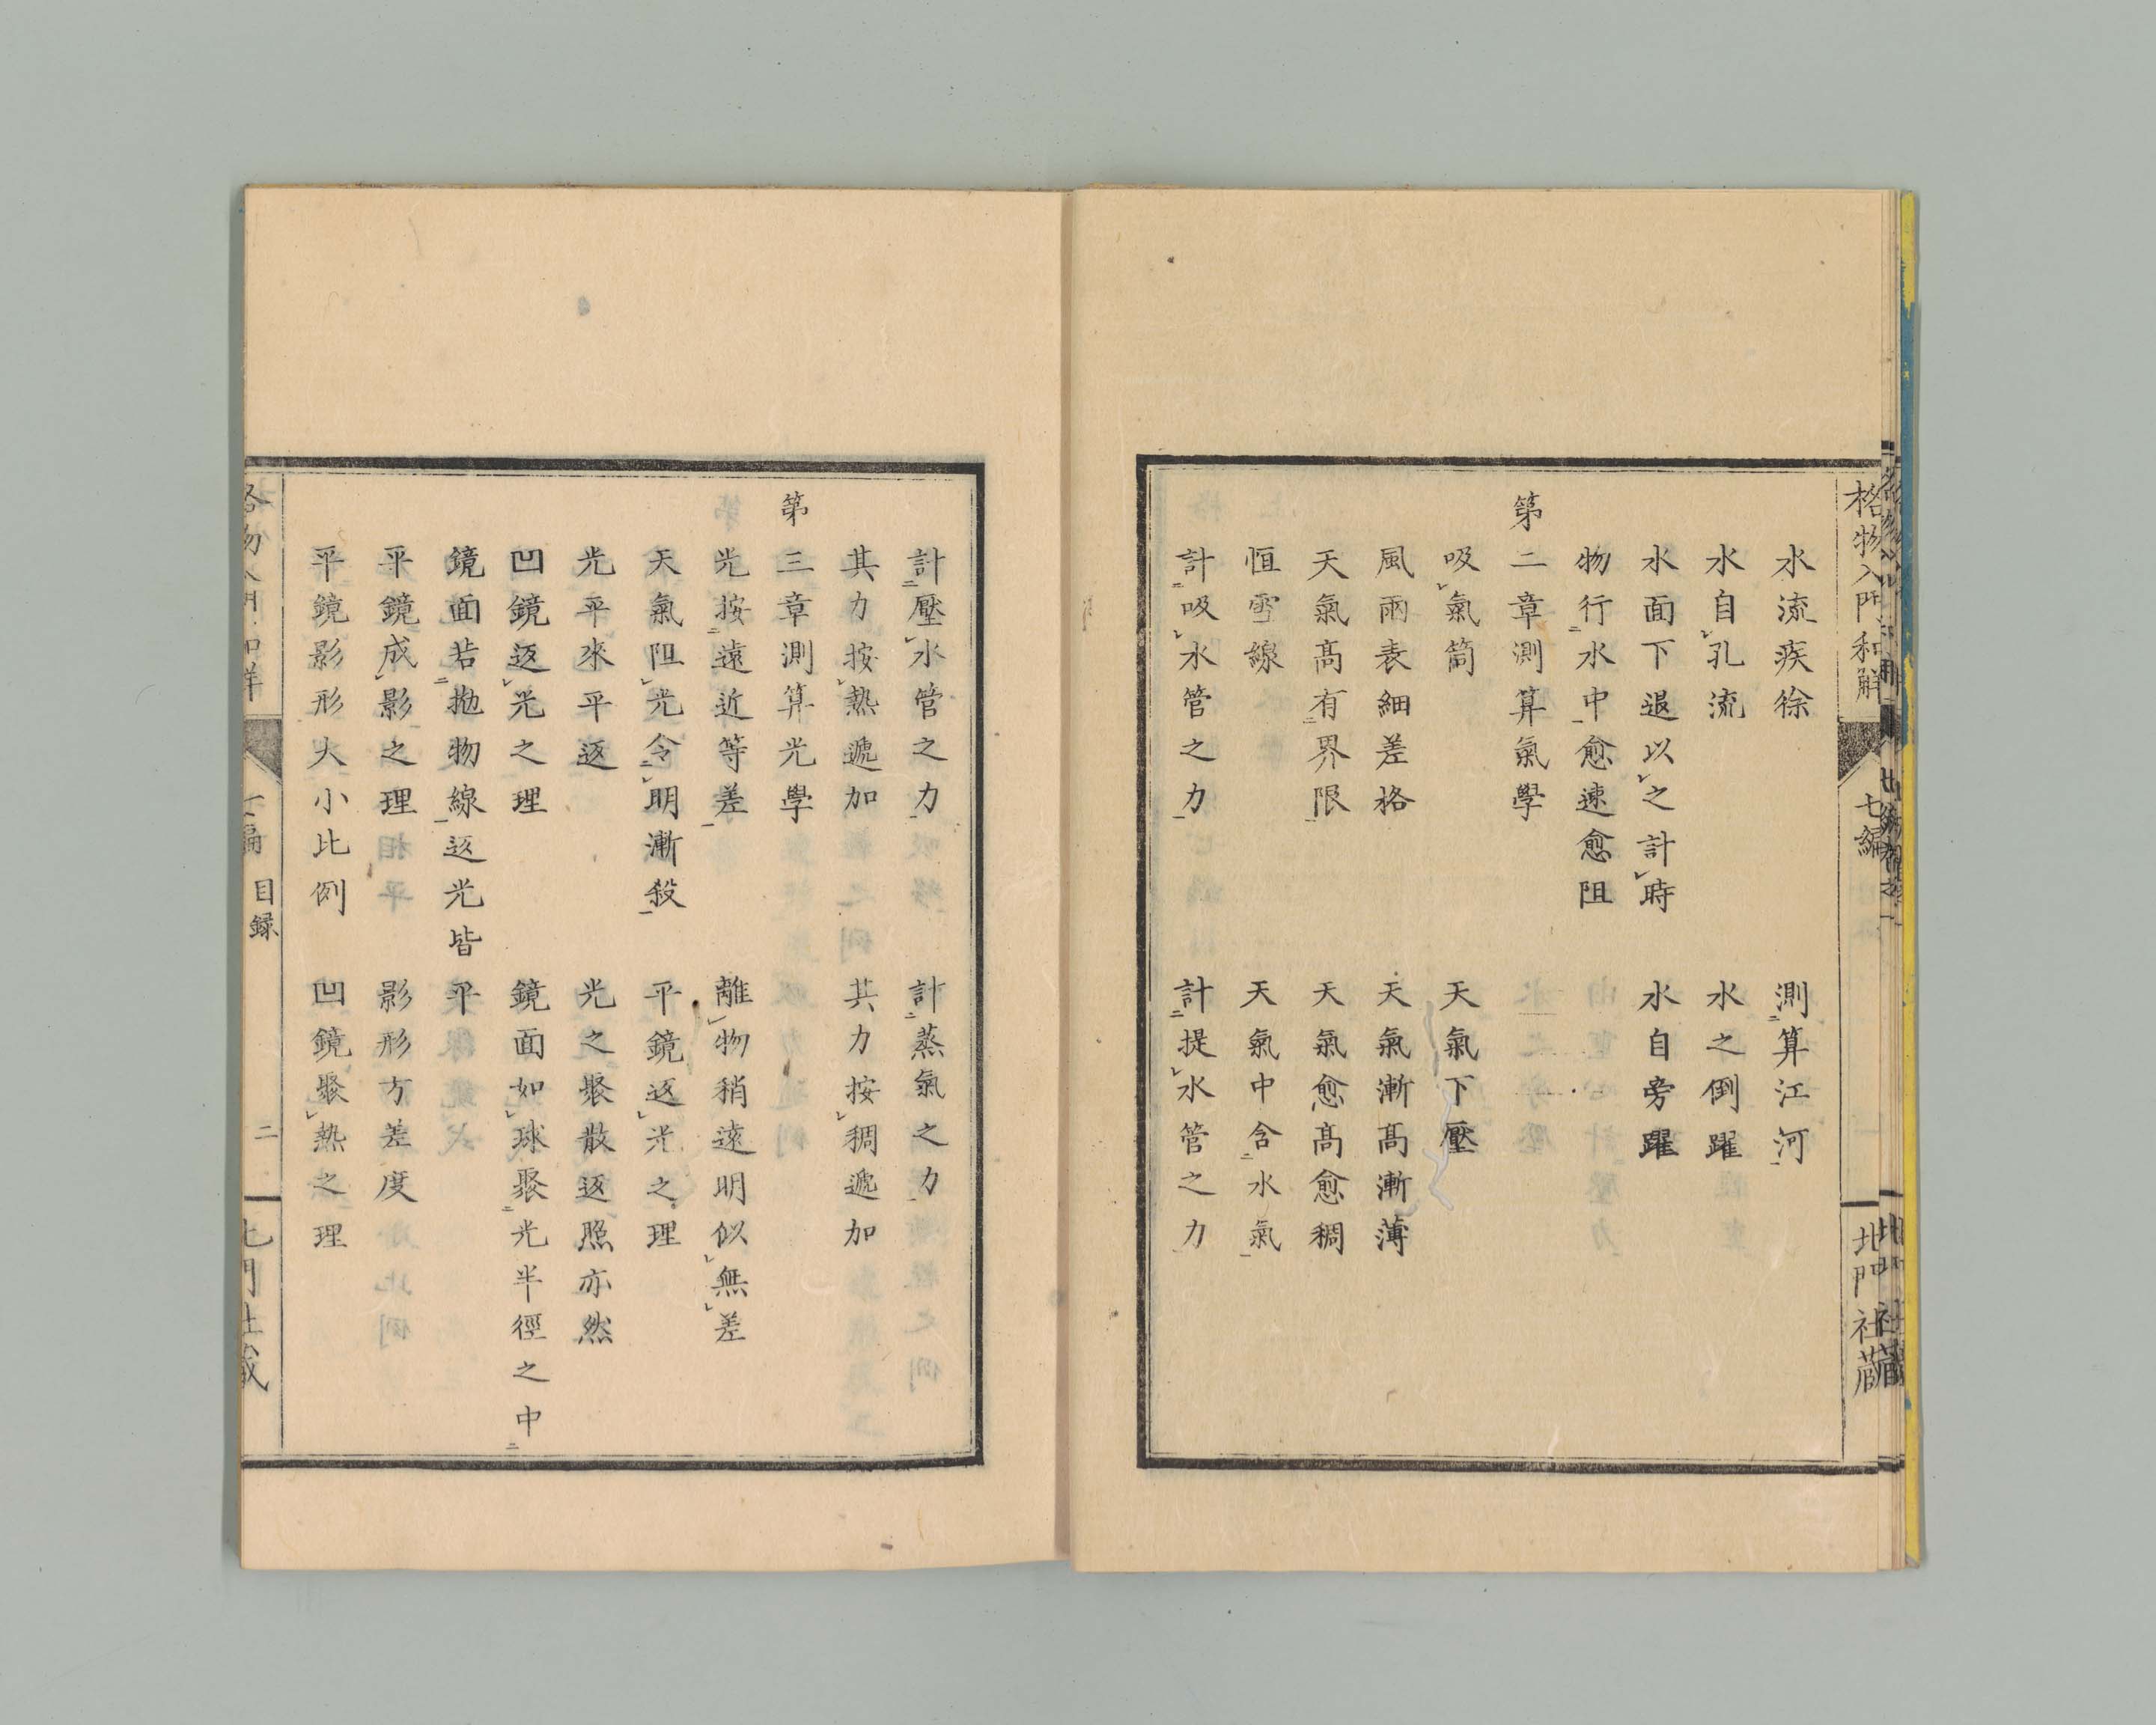 格物入門和解 七編 北門社蔵
水流疾徐 測算江河
水自孔流 水之倒躍
水面下退以之計時 水自旁躍
物行水中愈速愈阻
第二章測算氣學
吸氣筒 天氣下壓
風雨表細差格 天氣漸髙漸薄
天氣髙有界限 天氣愈髙愈稠
恒雪線 天氣中含水氣
計吸水管之力 計提水管之力
計壓水管之力 計蒸氣之力
其力按熱遞加 其力按稠遞加
第三章測算光學
光按遠近等差 離物稍遠明似無差
天氣阻光令明漸殺 平鏡返光之理
光平來平返 光之聚散返照亦然
凹鏡返光之理 鏡面如球聚光半徑之中
鏡面若抛物線返光皆平
平鏡成影之理 影形方差度
平鏡影形大小比例 凹鏡聚熱之理
目録 二